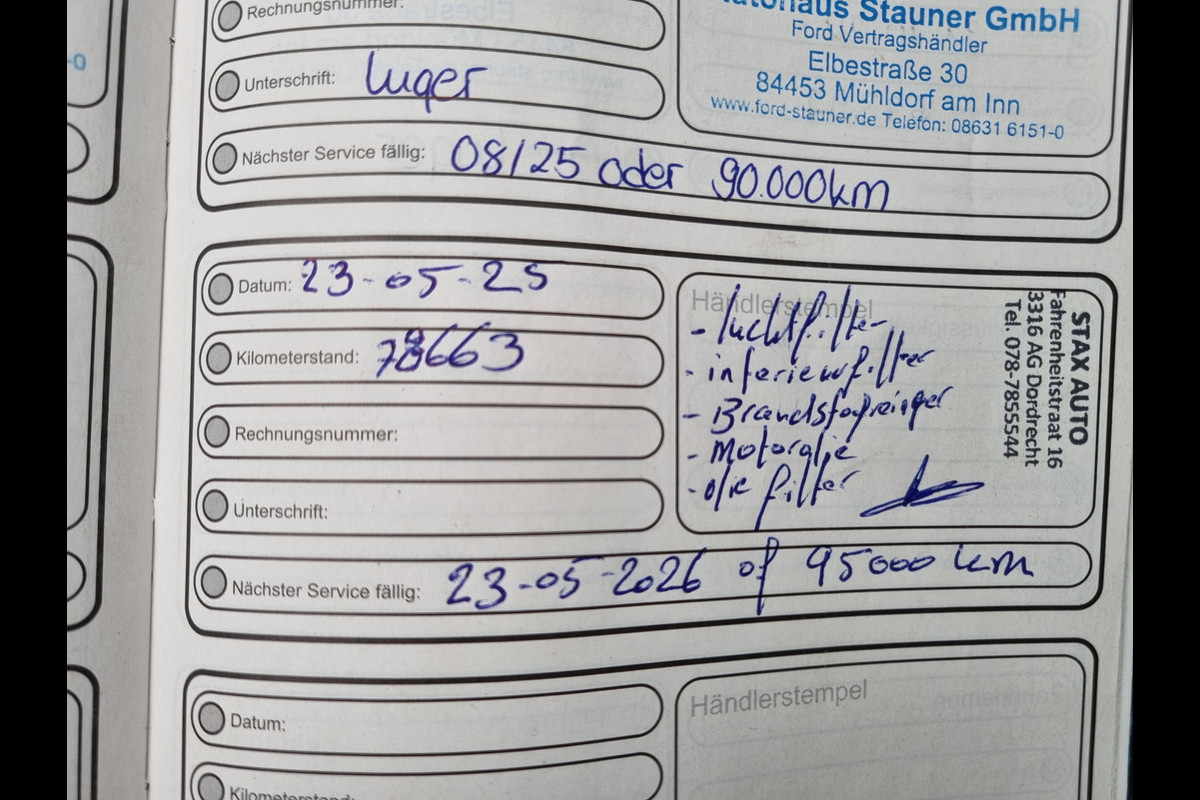 Rechnungsnummer:
Unterschrift: Luger
Nächster Service fällig: 08/25 oder 90.000km
Autohaus Stauner GmbH
Ford Vertragshändler
Elbestraße 30
84453 Mühldorf am Inn
www.ford-stauner.de Telefon: 08631 6151-0
Datum: 23-05-25
Kilometerstand: 78663
Rechnungsnummer:
Unterschrift:
Händlerstempel
- luchtfilter
- interieurfilter
- Brandstofreiniger
- Motorolie
- olie filter
STAX AUTO
Fahrenheitstraat 16
3316 AG Dordrecht
Tel. 078-7855544
Nächster Service fällig: 23-05-2026 of 95000 km
Datum:
Kilometerstand:
Händlerstempel